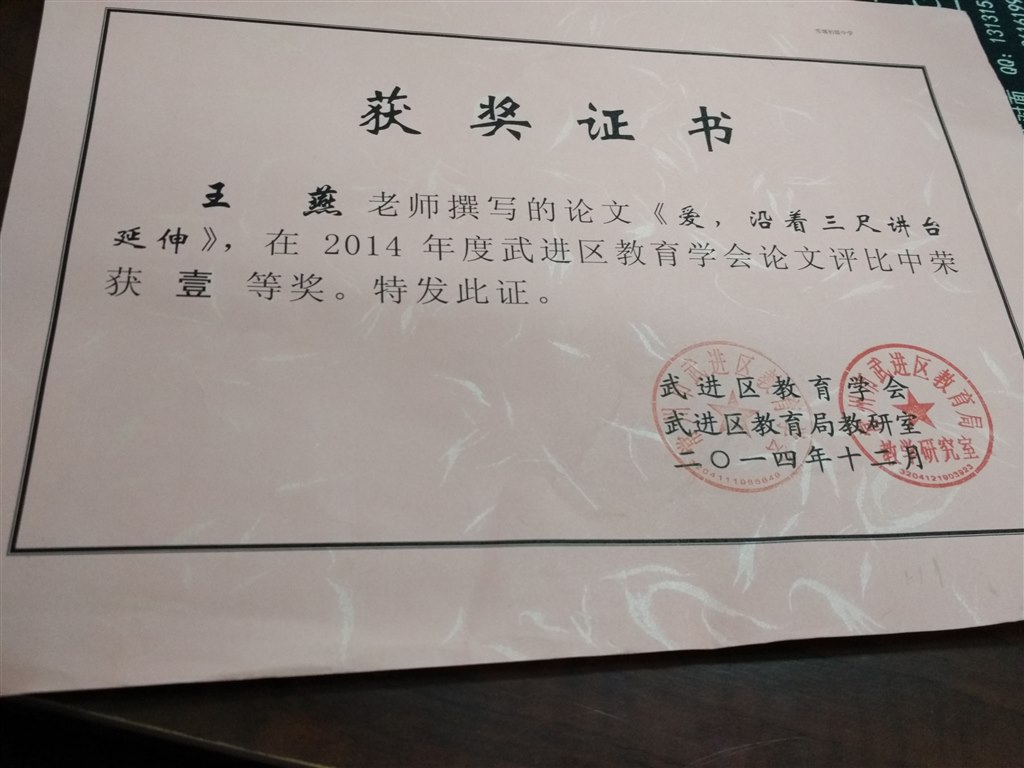 获奖证书
王燕老师撰写的论文《爱，沿着三尺讲台
延伸》，在 2014 年度武进区教育学会论文评比中荣
获 壹 等奖。特发此证。
武进区教育学会
武进区教育局教研室
二〇一四年十二月
武进区教育局
教学研究室
3204121903923
QQ：13131